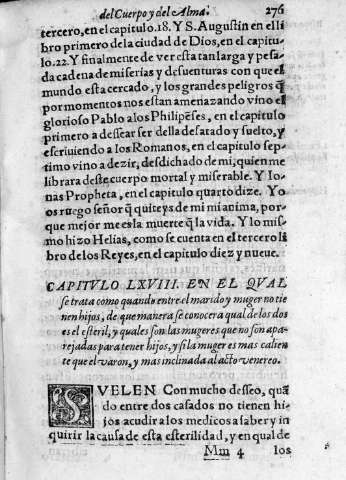 del Cuerpo y del Alma. 276
tercero, en el capitulo.18. Y S. Augustin en el li
bro primero de la ciudad de Dios, en el capitu-
lo.22. Y finalmente de ver esta tan larga y pesa-
da cadena de miserias y desuenturas con que el
mundo esta cercado, y los grandes peligros q̃
por momentos nos estan amenazando vino el
glorioso Pablo a los Philipẽses, en el capitulo
primero a dessear ser della desatado y suelto, y
escriuiendo a los Romanos, en el capitulo sep-
timo vino a dezir, desdichado de mi, quien me
librara deste cuerpo mortal y miserable. Y Io-
nas Propheta, en el capitulo quarto dize. Yo
os ruego señor q̃ quiteys de mi mi anima, por-
que mejor me es la muerte q̃ la vida. Y lo mis-
mo hizo Helias, como se cuenta en el tercero li
bro de los Reyes, en el capitulo diez y nueue.
CAPITVLO LXVIII. EN EL QVAL
se trata como quando entre el marido y muger no tie
nen hijos, de que manera se conocera qual de los dos
es el esteril, y quales son las mugeres que no son apa-
rejadas para tener hijos, y si la muger es mas calien
te que el varon, y mas inclinada al acto venereo.
SVELEN Con mucho desseo, quã
do entre dos casados no tienen hi-
jos acudir a los medicos a saber y in
quirir la causa de esta esterilidad, y en qual de
Mm 4 los